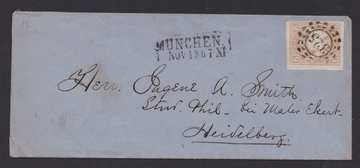 MÜNCHEN
NOV 186 XI
Herr. Eugene A. Smith
Stud. Phil. bei Maler
Heidelberg.